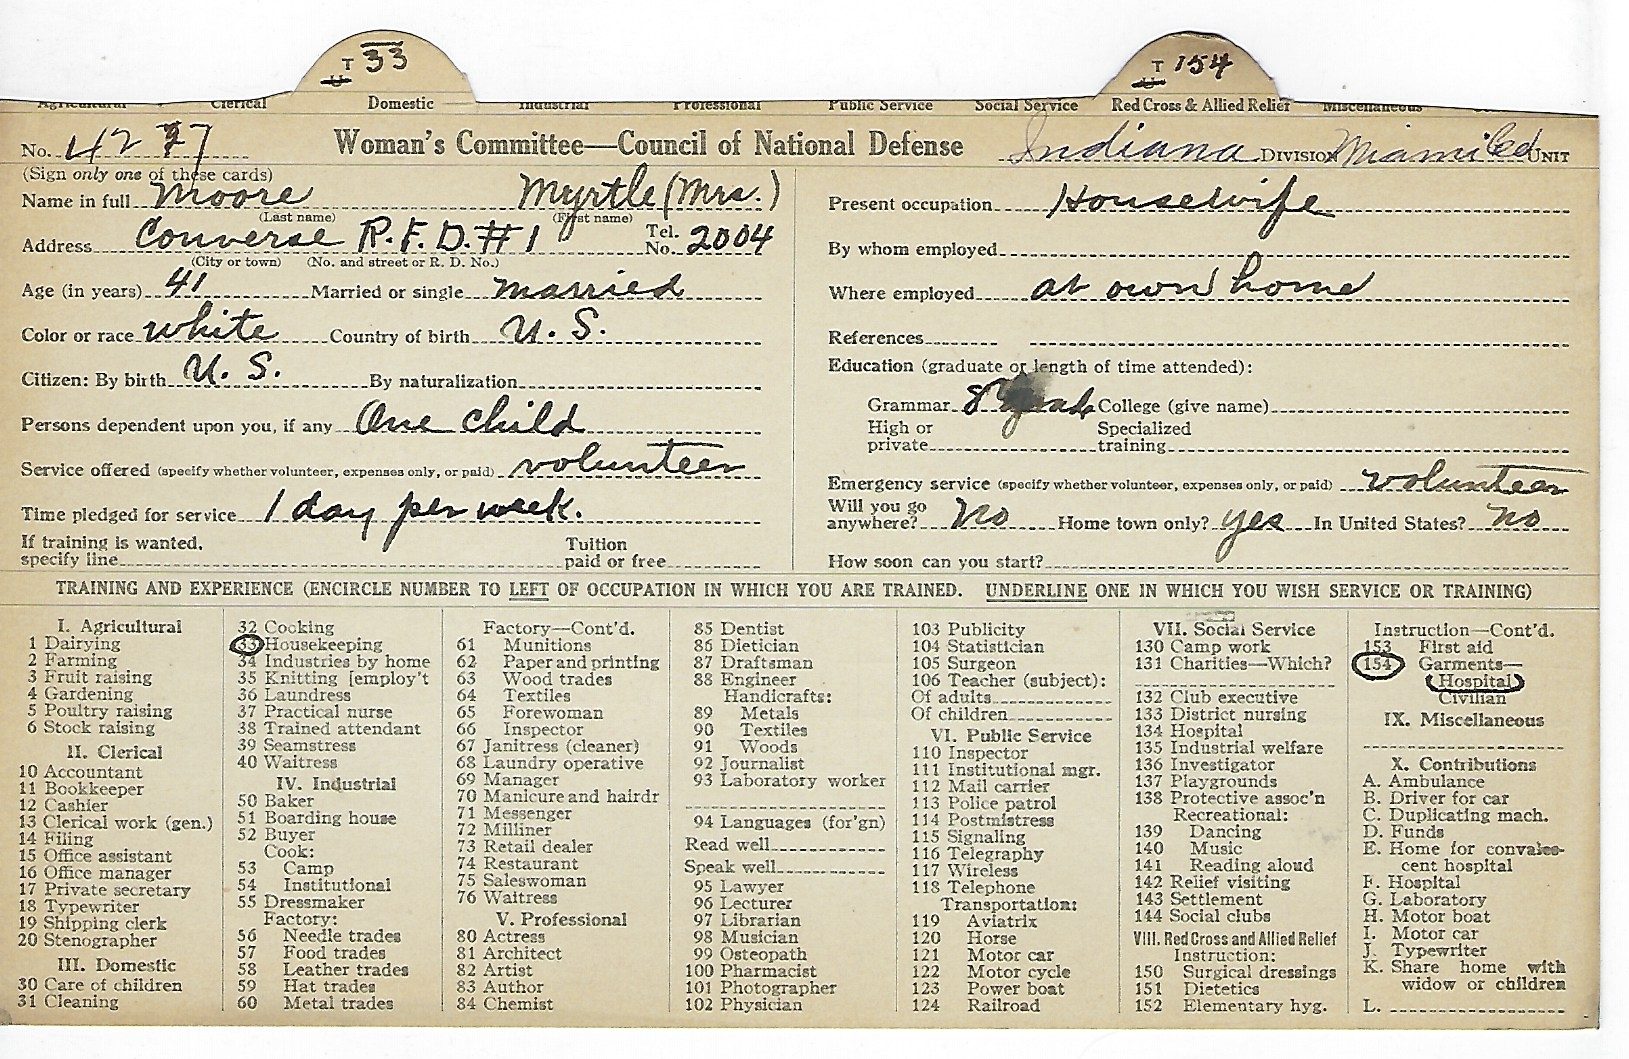 T 33
T 154
Agricultural Clerical Domestic Industrial Professional Public Service Social Service Red Cross & Allied Relief Miscellaneous
No. 4277 Woman's Committee—Council of National Defense Indiana DIVISION Miami Co UNIT
(Sign only one of these cards)
Name in full Moore Myrtle (Mrs.)
(Last name) (First name)
Address Converse R.F.D. #1 Tel. No. 2004
(City or town) (No. and street or R. D. No.)
Age (in years) 41 Married or single married
Color or race white Country of birth U. S.
Citizen: By birth U. S. By naturalization
Persons dependent upon you, if any One child
Service offered (specify whether volunteer, expenses only, or paid) volunteer
Time pledged for service 1 day per week.
If training is wanted, Tuition
specify line paid or free
Present occupation Housewife
By whom employed
Where employed at own home
References
Education (graduate or length of time attended):
Grammar 8 College (give name)
High or Specialized
private training
Emergency service (specify whether volunteer, expenses only, or paid) volunteer
Will you go
anywhere? No Home town only? yes In United States? no
How soon can you start?
TRAINING AND EXPERIENCE (ENCIRCLE NUMBER TO LEFT OF OCCUPATION IN WHICH YOU ARE TRAINED. UNDERLINE ONE IN WHICH YOU WISH SERVICE OR TRAINING)
I. Agricultural
1 Dairying
2 Farming
3 Fruit raising
4 Gardening
5 Poultry raising
6 Stock raising
II. Clerical
10 Accountant
11 Bookkeeper
12 Cashier
13 Clerical work (gen.)
14 Filing
15 Office assistant
16 Office manager
17 Private secretary
18 Typewriter
19 Shipping clerk
20 Stenographer
III. Domestic
30 Care of children
31 Cleaning
32 Cooking
33 Housekeeping
34 Industries by home
35 Knitting [employ't
36 Laundress
37 Practical nurse
38 Trained attendant
39 Seamstress
40 Waitress
IV. Industrial
50 Baker
51 Boarding house
52 Buyer
Cook:
53 Camp
54 Institutional
55 Dressmaker
Factory:
56 Needle trades
57 Food trades
58 Leather trades
59 Hat trades
60 Metal trades
Factory—Cont'd.
61 Munitions
62 Paper and printing
63 Wood trades
64 Textiles
65 Forewoman
66 Inspector
67 Janitress (cleaner)
68 Laundry operative
69 Manager
70 Manicure and hairdr
71 Messenger
72 Milliner
73 Retail dealer
74 Restaurant
75 Saleswoman
76 Waitress
V. Professional
80 Actress
81 Architect
82 Artist
83 Author
84 Chemist
85 Dentist
86 Dietician
87 Draftsman
88 Engineer
Handicrafts:
89 Metals
90 Textiles
91 Woods
92 Journalist
93 Laboratory worker
94 Languages (for'gn)
Read well
Speak well
95 Lawyer
96 Lecturer
97 Librarian
98 Musician
99 Osteopath
100 Pharmacist
101 Photographer
102 Physician
103 Publicity
104 Statistician
105 Surgeon
106 Teacher (subject):
Of adults
Of children
VI. Public Service
110 Inspector
111 Institutional mgr.
112 Mail carrier
113 Police patrol
114 Postmistress
115 Signaling
116 Telegraphy
117 Wireless
118 Telephone
Transportation:
119 Aviatrix
120 Horse
121 Motor car
122 Motor cycle
123 Power boat
124 Railroad
VII. Social Service
130 Camp work
131 Charities—Which?
132 Club executive
133 District nursing
134 Hospital
135 Industrial welfare
136 Investigator
137 Playgrounds
138 Protective assoc'n
Recreational:
139 Dancing
140 Music
141 Reading aloud
142 Relief visiting
143 Settlement
144 Social clubs
VIII. Red Cross and Allied Relief
Instruction:
150 Surgical dressings
151 Dietetics
152 Elementary hyg.
Instruction—Cont'd.
153 First aid
154 Garments—
Hospital
Civilian
IX. Miscellaneous
X. Contributions
A. Ambulance
B. Driver for car
C. Duplicating mach.
D. Funds
E. Home for convales-
cent hospital
F. Hospital
G. Laboratory
H. Motor boat
I. Motor car
J. Typewriter
K. Share home with
widow or children
L.